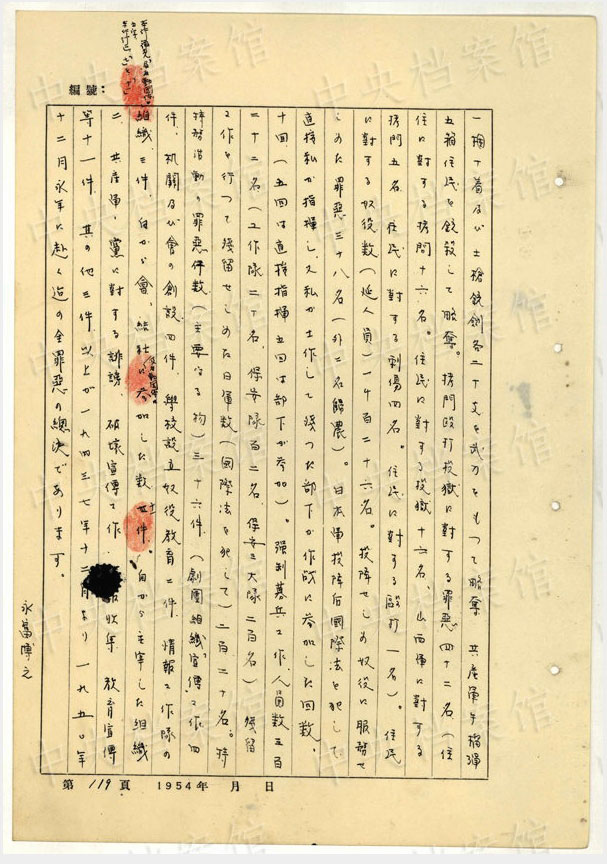 編號：
一掴十着及び土槍銃剣各二十丈を武力をもつて略奪　共産軍
五箱住民を銃殺して略奪。拷問殴打投獄に対する罪悪　四十二名（住
住に対する拷問十六名。住民に対する投獄十六名、山西軍に対する
拷問五名　住民に対する刺傷四名。住民に対する殴打一名）。住民
に対する奴役数（延人員）一千百二十六名。投降せしめ奴役に服務せ
しめた罪悪三十八名（外に二名酷農）。日本軍投降后國際法を犯して
直接私が指揮し又私が工作して残つた部下が作戦に参加した回数、
十回（五回は直接指揮五回は部下が参加）。強制募兵工作人員数五百
二十二名（工作隊二十名、保安隊百二名　保安大隊二百名）残留
工作を行つて残留せしめた日軍数（國際法を犯して）二百二十名。特
務活動の罪悪件数（主要なる物）三十六件、（劇團組織宣傳工作四
件、机關及び會の創設四件、學校設立奴役教育二件　情報工作隊の
組織三件、自から會、結社に参加した数　件。自から主宰した組織
二、共産軍、黨に対する誹謗　破壊宣傳工作、収集　教育宣傳
等十一件、其の他三件　以上が一九四三七年十二月より一九五〇年
十二月永年に赴く迄の全罪悪の總決であります。
永富博之
第119頁　1954年　月　日
中央档案馆